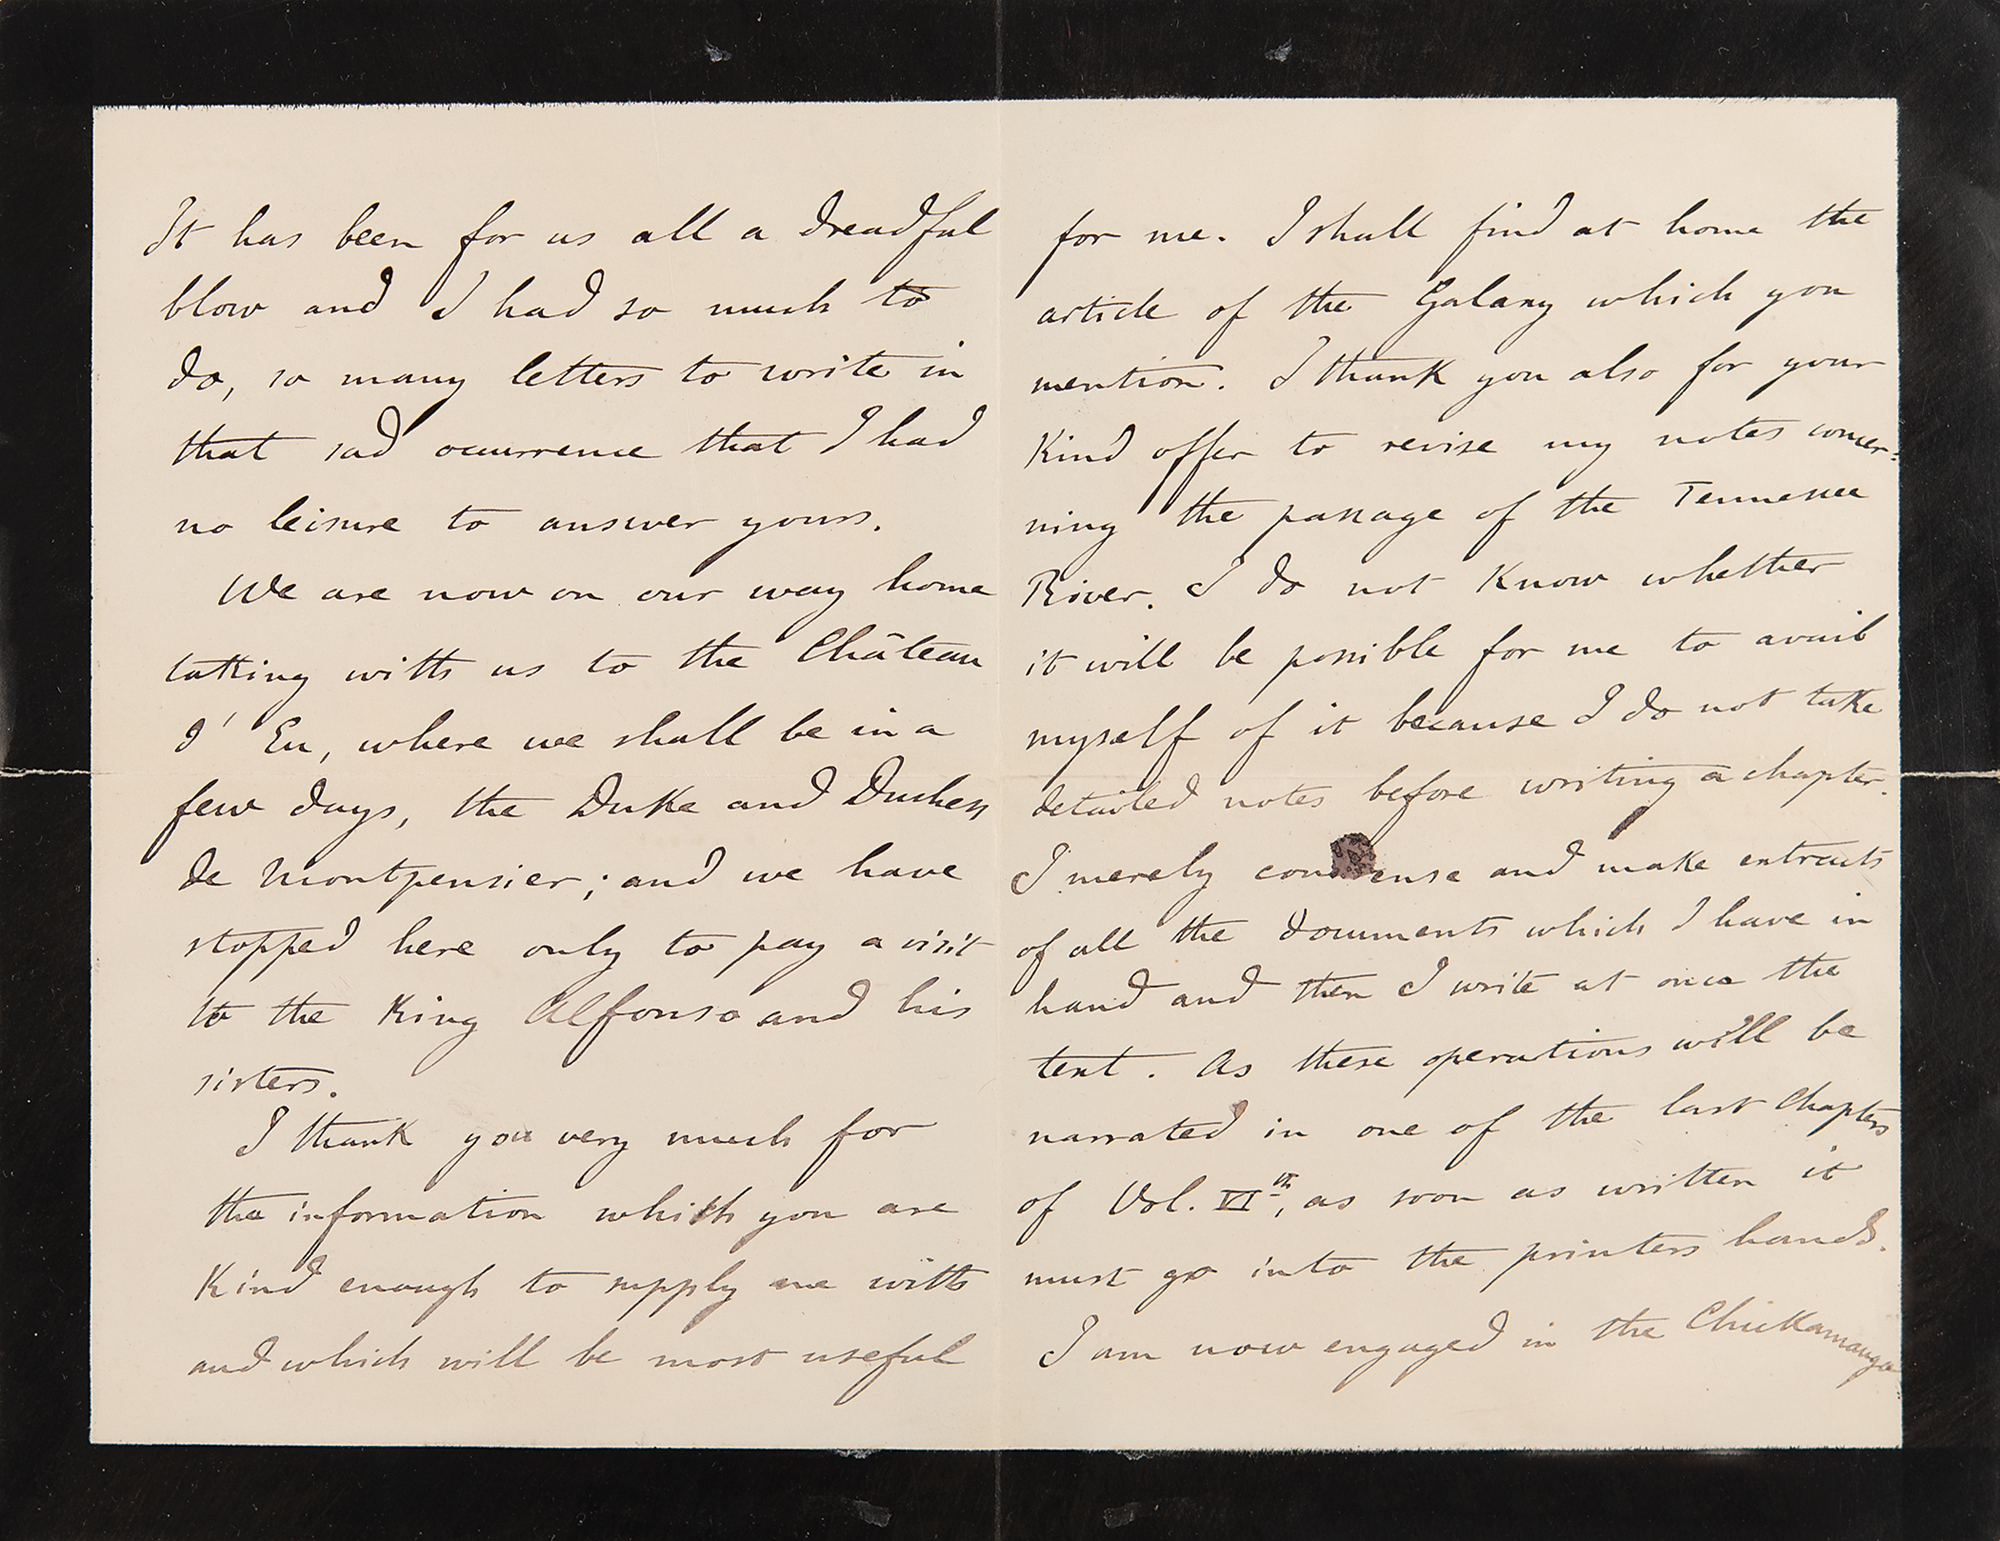 It has been for us all a dreadful
blow and I had so much to
do, so many letters to write in
that sad ocurrence that I had
no leisure to answer yours.
We are now on our way home
taking with us to the Château
d' Eu, where we shall be in a
few days, the Duke and Duchess
de Montpensier; and we have
stopped here only to pay a visit
to the King Alfonso and his
sisters.
I thank you very much for
the information which you are
Kind enough to supply me with
and which will be most useful
for me. I shall find at home the
article of the Galaxy which you
mention. I thank you also for your
Kind offer to revise my notes concer=
ning the passage of the Tennessee
River. I do not Know whether
it will be possible for me to avail
myself of it because I do not take
detailed notes before writing a chapter.
I merely condense and make extracts
of all the documents which I have in
hand and then I write at once the
text. As these operations will be
narrated in one of the last chapters
of Vol. VIth, as soon as written it
must go into the printers hands.
I am now engaged in the Chickamauga